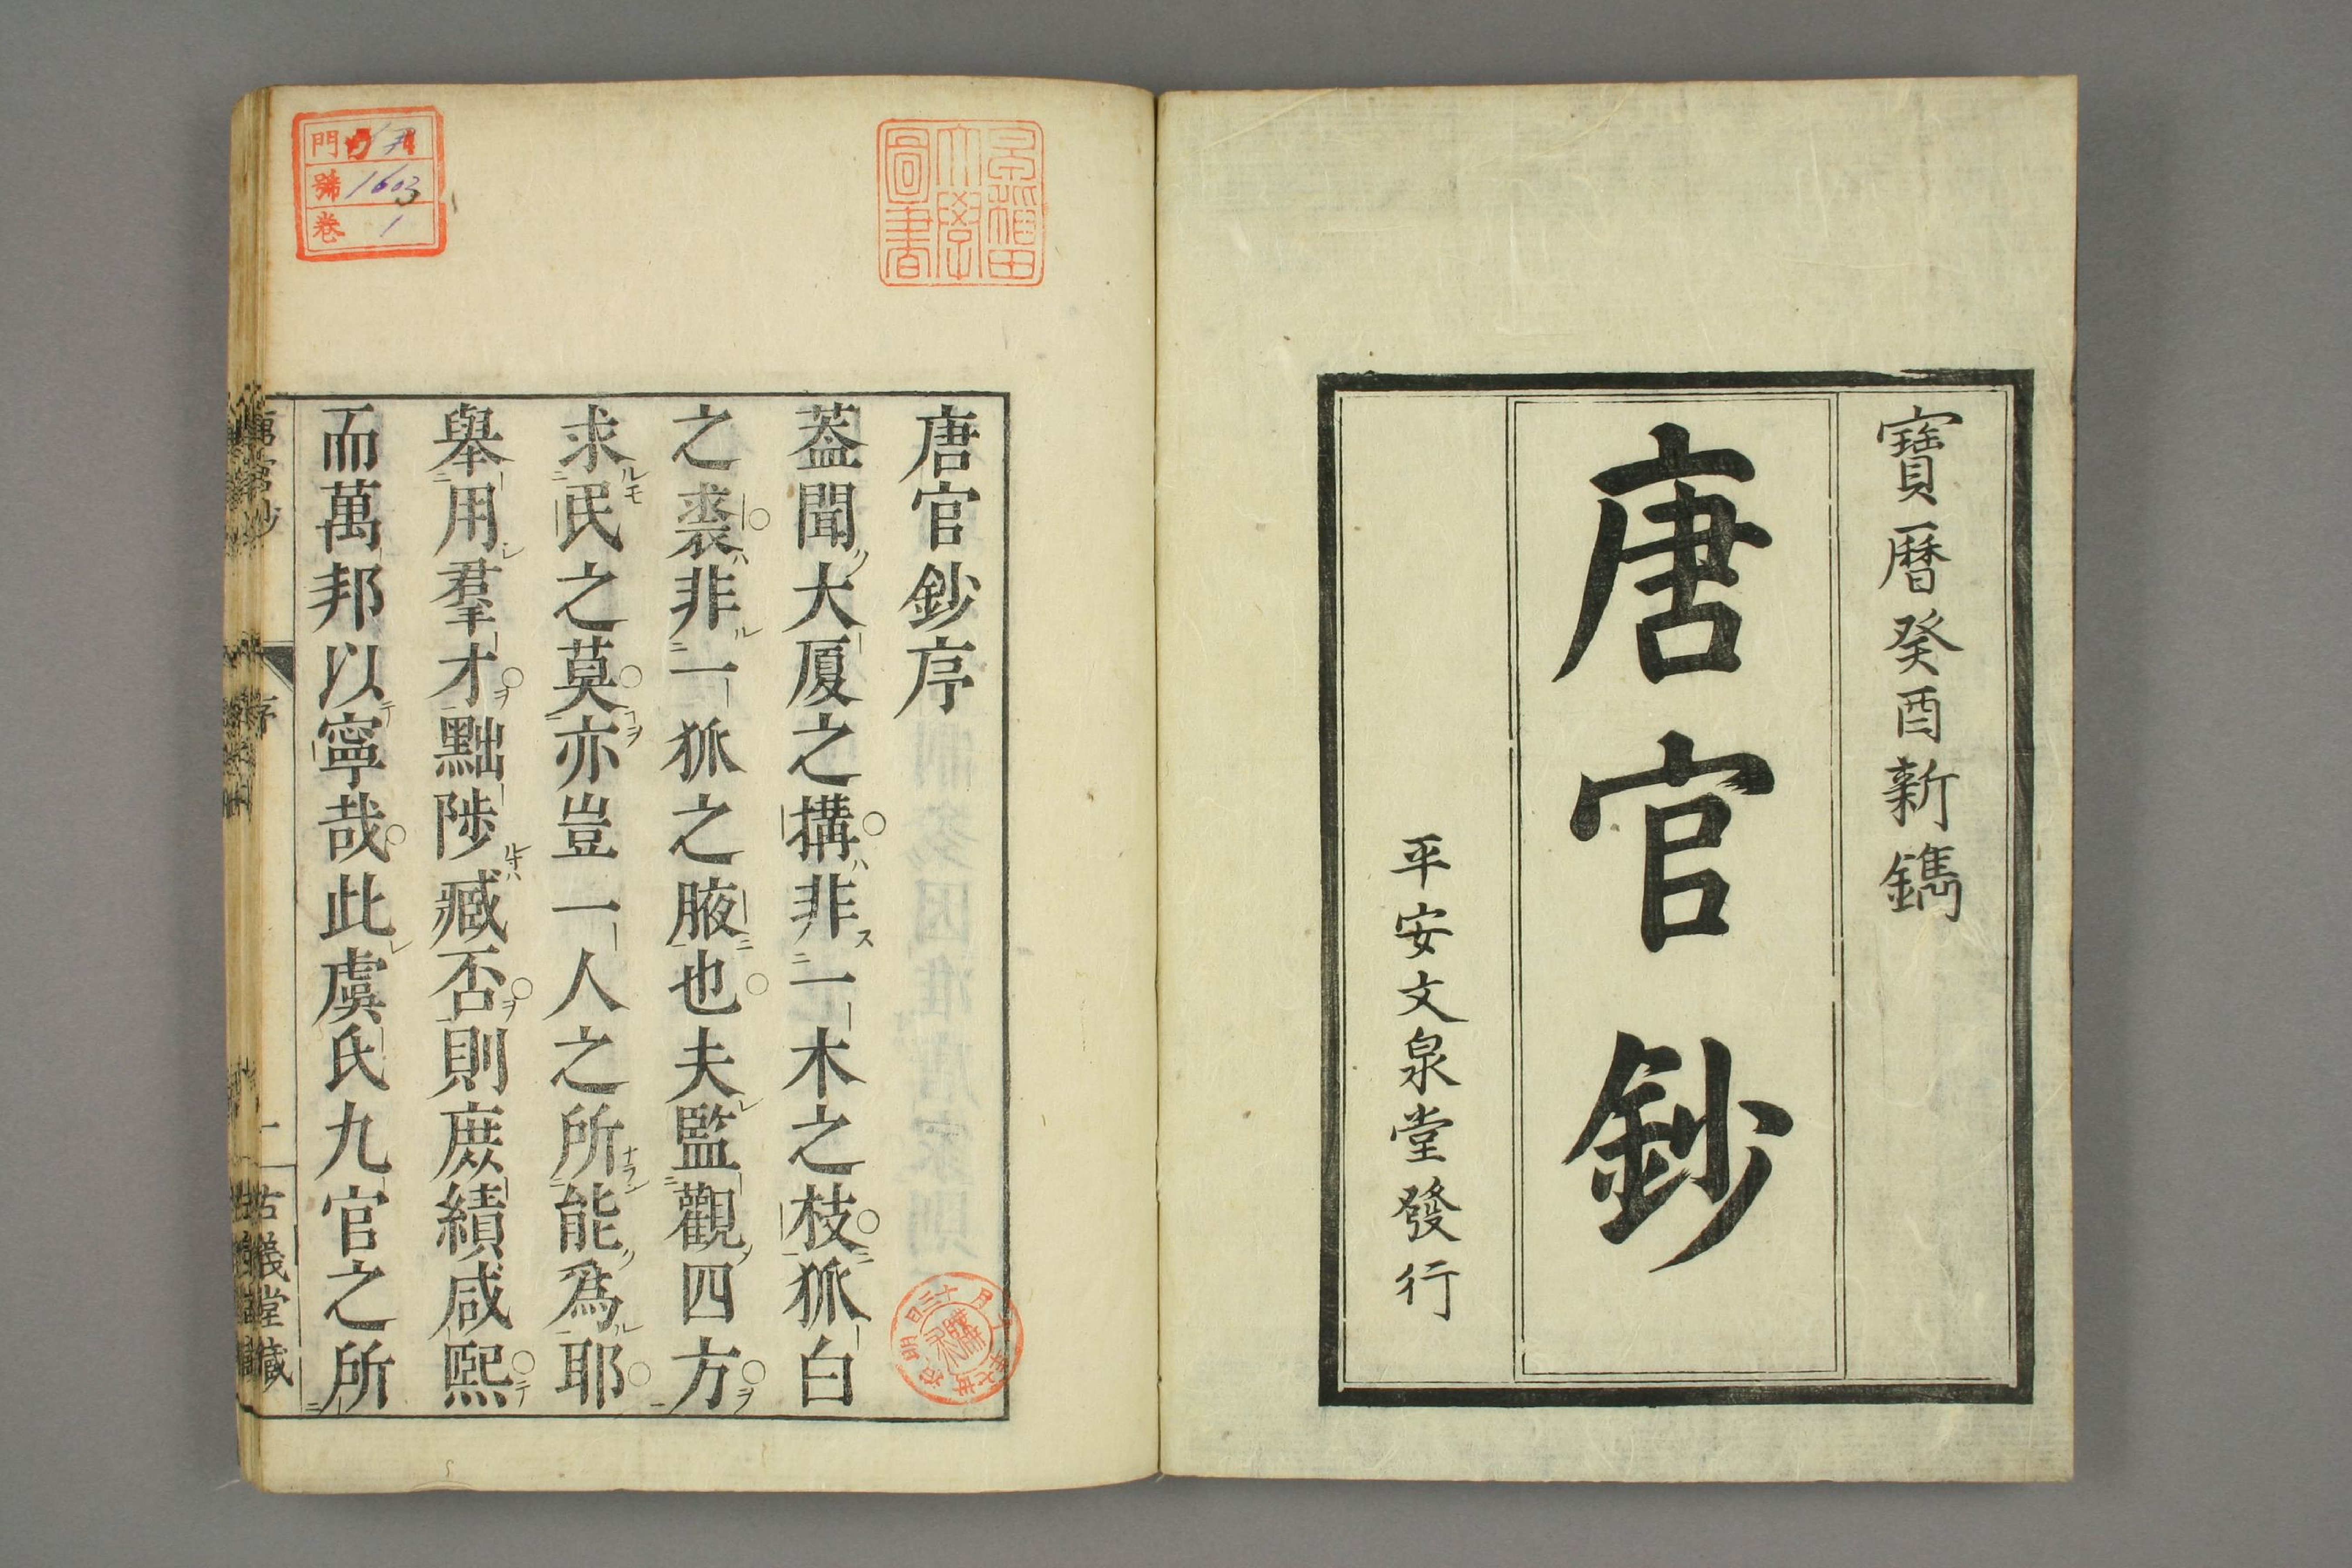 寶曆癸酉新鐫
唐官鈔
平安文泉堂發行
早稲田大學圖書
門
號 1603
卷 1
唐官鈔序
葢聞大厦之構非一木之枝狐白
之裘非一狐之腋也夫監觀四方
求民之莫亦豈一人之所能爲耶
舉用羣才黜陟臧否則庶績咸熙
而萬邦以寧哉此虞氏九官之所
唐官鈔 序 一 古義堂藏